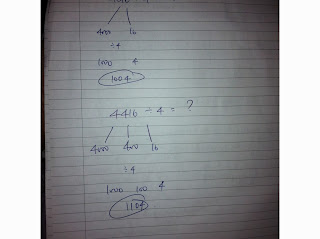 4000 16
÷4
1000 4
1004
4416 ÷ 4 = ?
4000 400 16
÷4
1000 100 4
1104